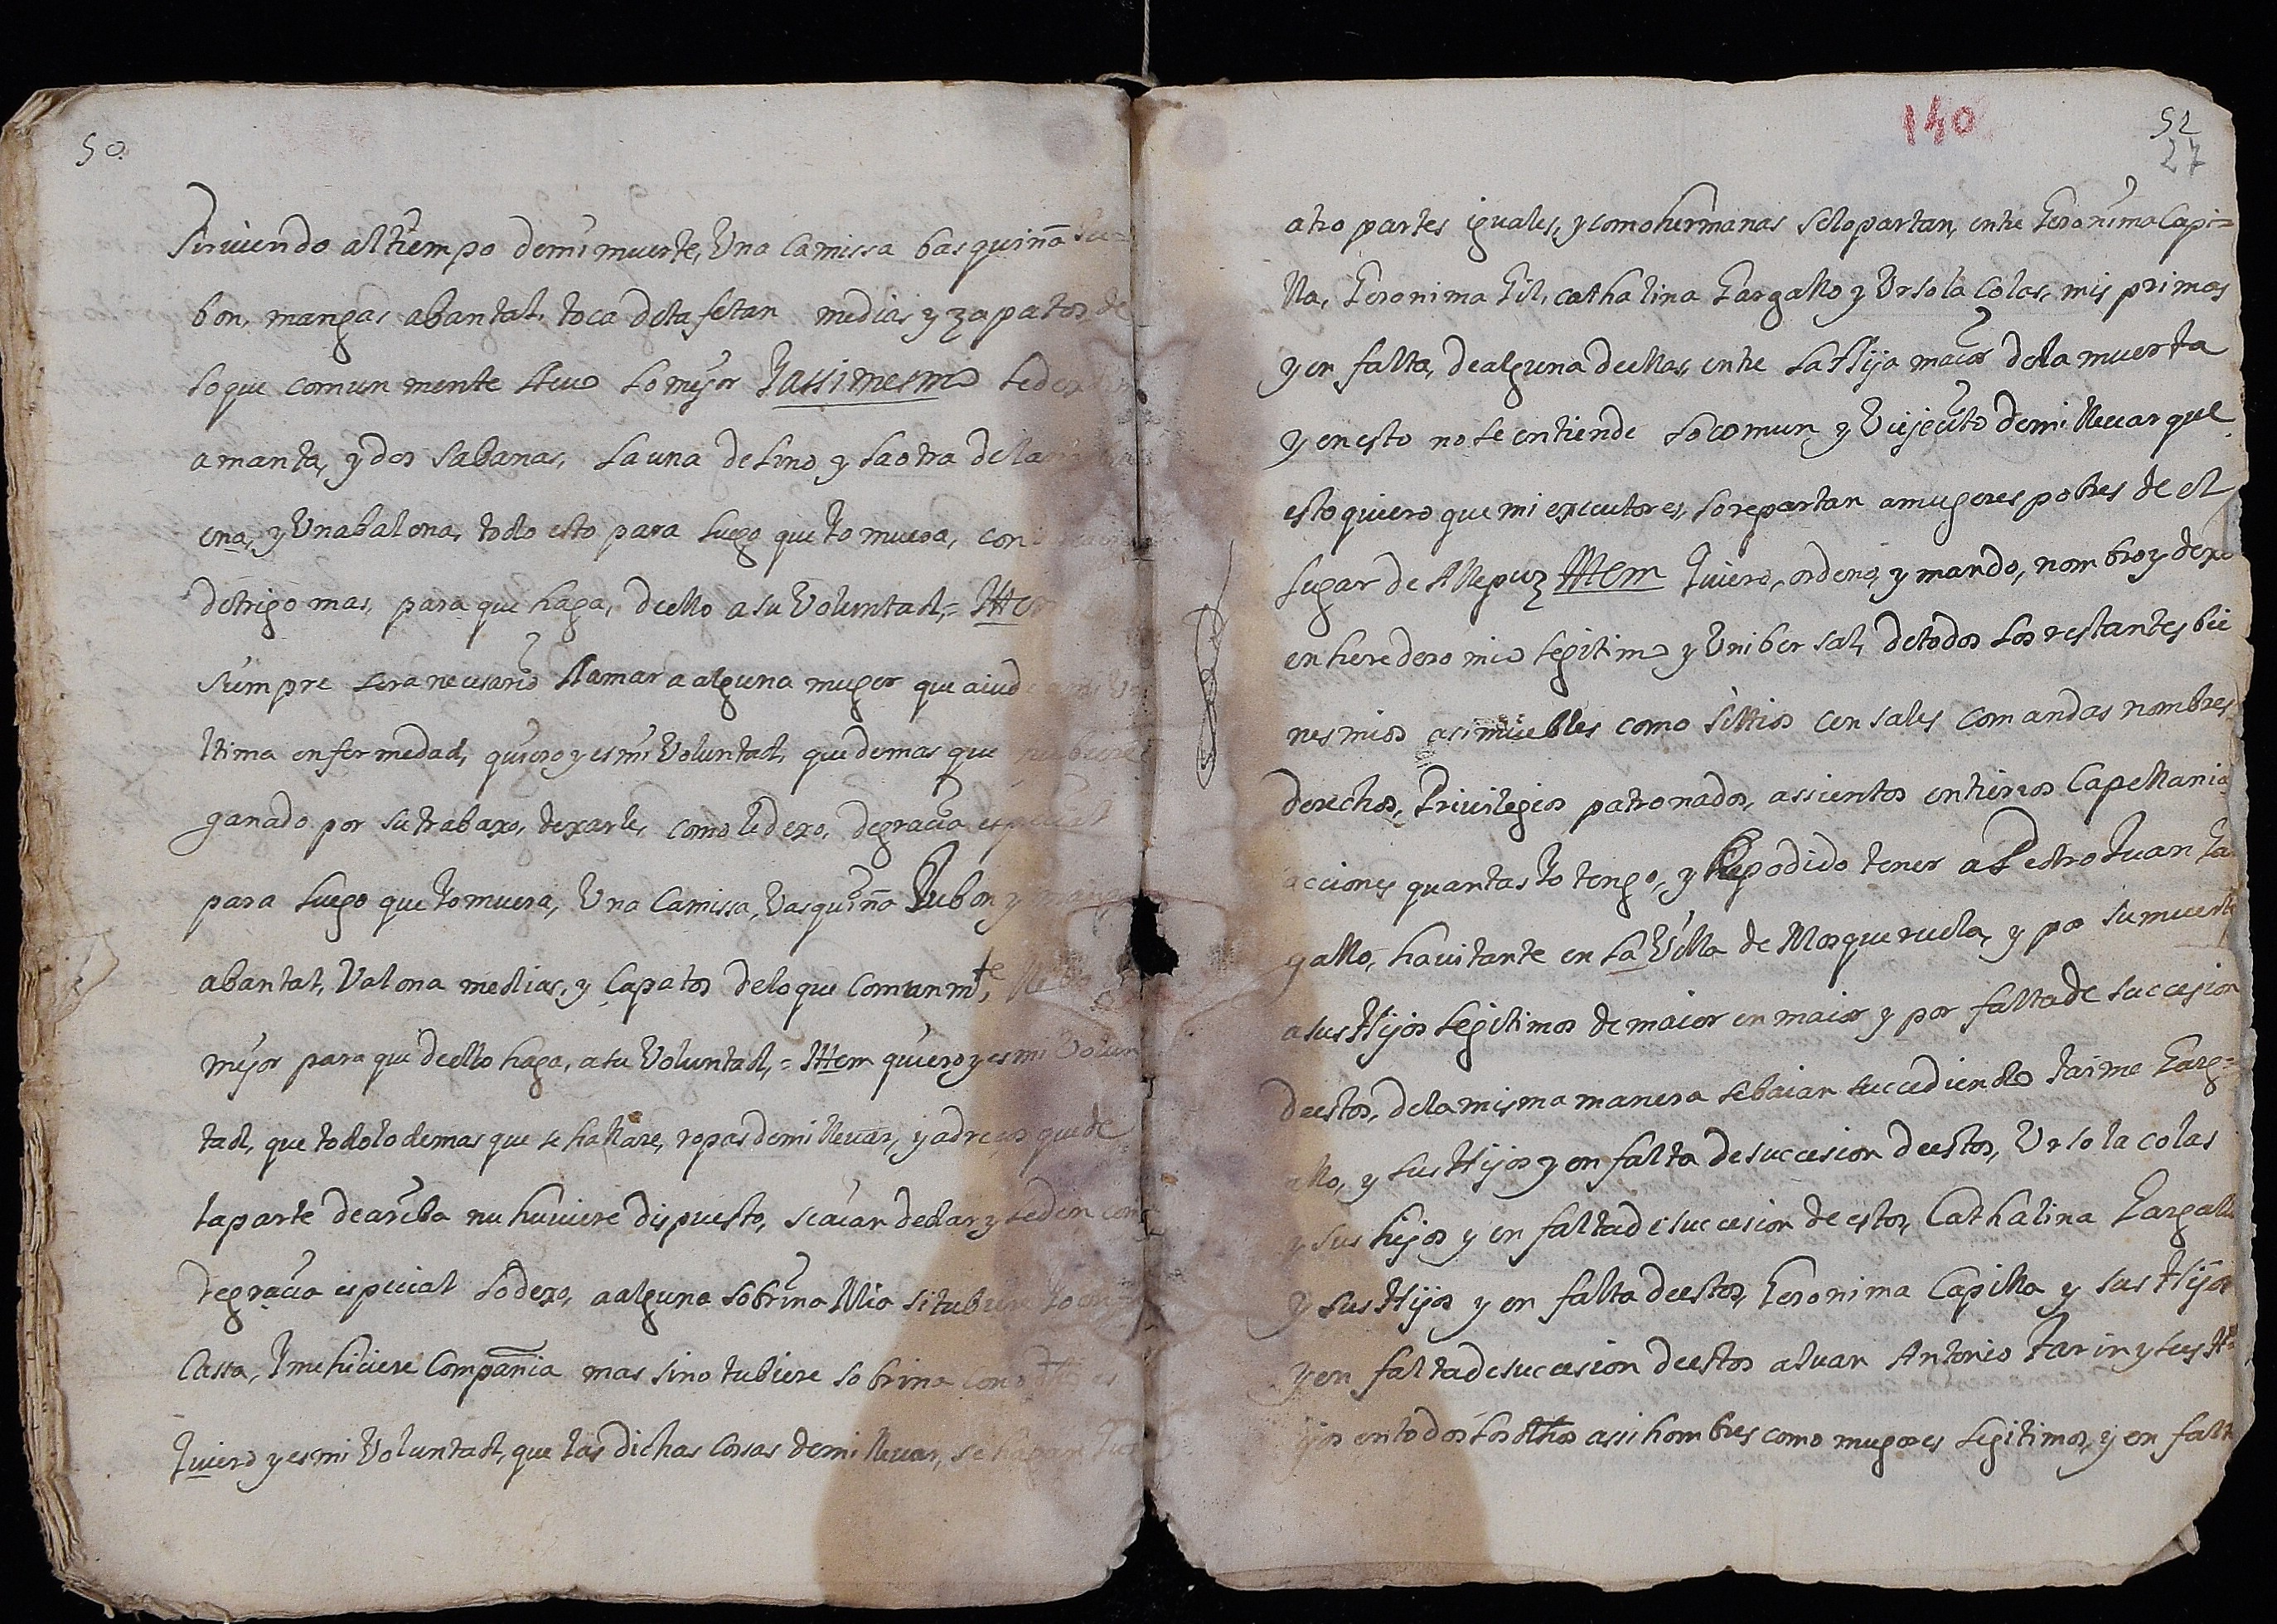 50.
Sirviendo al tiempo de mi muerte, Una Camissa basquiña Ju=
bon, mangas abantal, toca de tafetan medias y zapatos, de
lo que comun mente llevo lo mejor Y assimesmo le dexo
a manta, y dos Sabanas, La una de Lino y La otra de
ena, y Una balona, todo esto para Luego que Yo muera, con
de trigo mas, para que haga, de ello a su Voluntad, = Ittem
Siempre sera necesario llamar a alguna muger que aiude
ltima enfermedad, quiero y es mi Voluntad, que demas que
ganado por su trabaxo, dexarle, como le dexo, de gracia especial
para Luego que Yo muera, Una Camissa, Vasquiña Jubon y
abantal, Valona medias, y Çapatos de lo que Comunmte,
mejor para que de ello haga, a su Voluntad, = Ittem quiero y es mi Volun
tad, que todo lo demas que se hallare, ropas de mi llevar, y adreços que de
la parte de ariba nu huviere dispuesto, se aian de dar y se den como
de gracia especial Lo dexo, a alguna sobrina Mia si tubiere Yo en
Cassa, Y me hiciere Compañia mas sino tubiere sobrina como dho es
Quiero y es mi Voluntad, que las dichas Cosas de mi llevar, se hagan
140
52
27
atro partes iguales, y como hermanas Se lo partan, entre Geronima Capi=
lla, Geronima Gil, Cathalina Gargallo y Ursola Colas, mis primas
y en falta, de alguna de ellas, entre La Hija maior de la muerta
y en esto no se entiende Lo comun y Viejecito de mi llevar que
esto quiero que mi executores, Lo repartan a mugeres pobres de el
Lugar de Allepuz Ittem Quiero, ordeno, y mando, nombro y dexo
en heredero mio Legitimo y Unibersal, de todos Los restantes bie
nes mios asi muebles como Sittios Censales Comandas nombres
derechos, Privilegios patronados, assientos entierros Capellania
acciones quantas Yo tengo, y he podido tener a Pestro Juan Ga
gallo, havitante en La Villa de Mosqueruela, y por su muerte
a sus Hijos Legitimos de maior en maior y por falta de Succesion
de estos, de la misma manera se baian succediendo Jaime Garg=
allo, y sus Hijos y en falta de succesion de estos, Ursola colas
y sus hijos y en falta de succesion de estos, Cathalina Gargallo
Y sus Hijos y en falta de estos, Geronima Capilla y sus Hijos
y en falta de succesion de estos a Juan Antonio Jarin y sus H
ijos en todos Los dhos assi hombres como mugeres Legitimos, y en falta